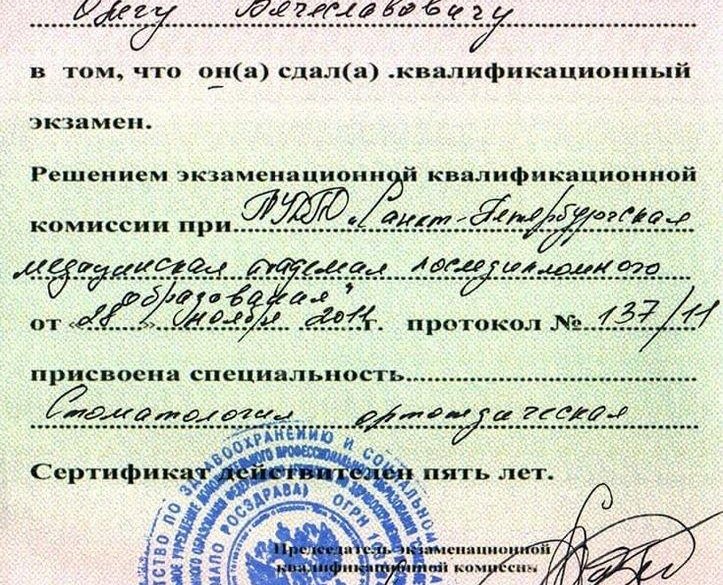 Олегу Вячеславовичу
в том, что он(а) сдал(а) .квалификационный
экзамен.
Решением экзаменационной квалификационной
комиссии при ГОУДПО „Санкт-Петербургская
медицинская академия последипломного
образования"
от «28» ноября 2011г. протокол № 137/11
присвоена специальность
Стоматология ортопедическая
Сертификат действителен пять лет.
СТВО ПО ЗДРАВООХРАНЕНИЮ И СОЦИАЛЬНОМ
МАПО РОСЗДРАВА) ОГРН
Председатель экзаменационной
квалификационной комиссии